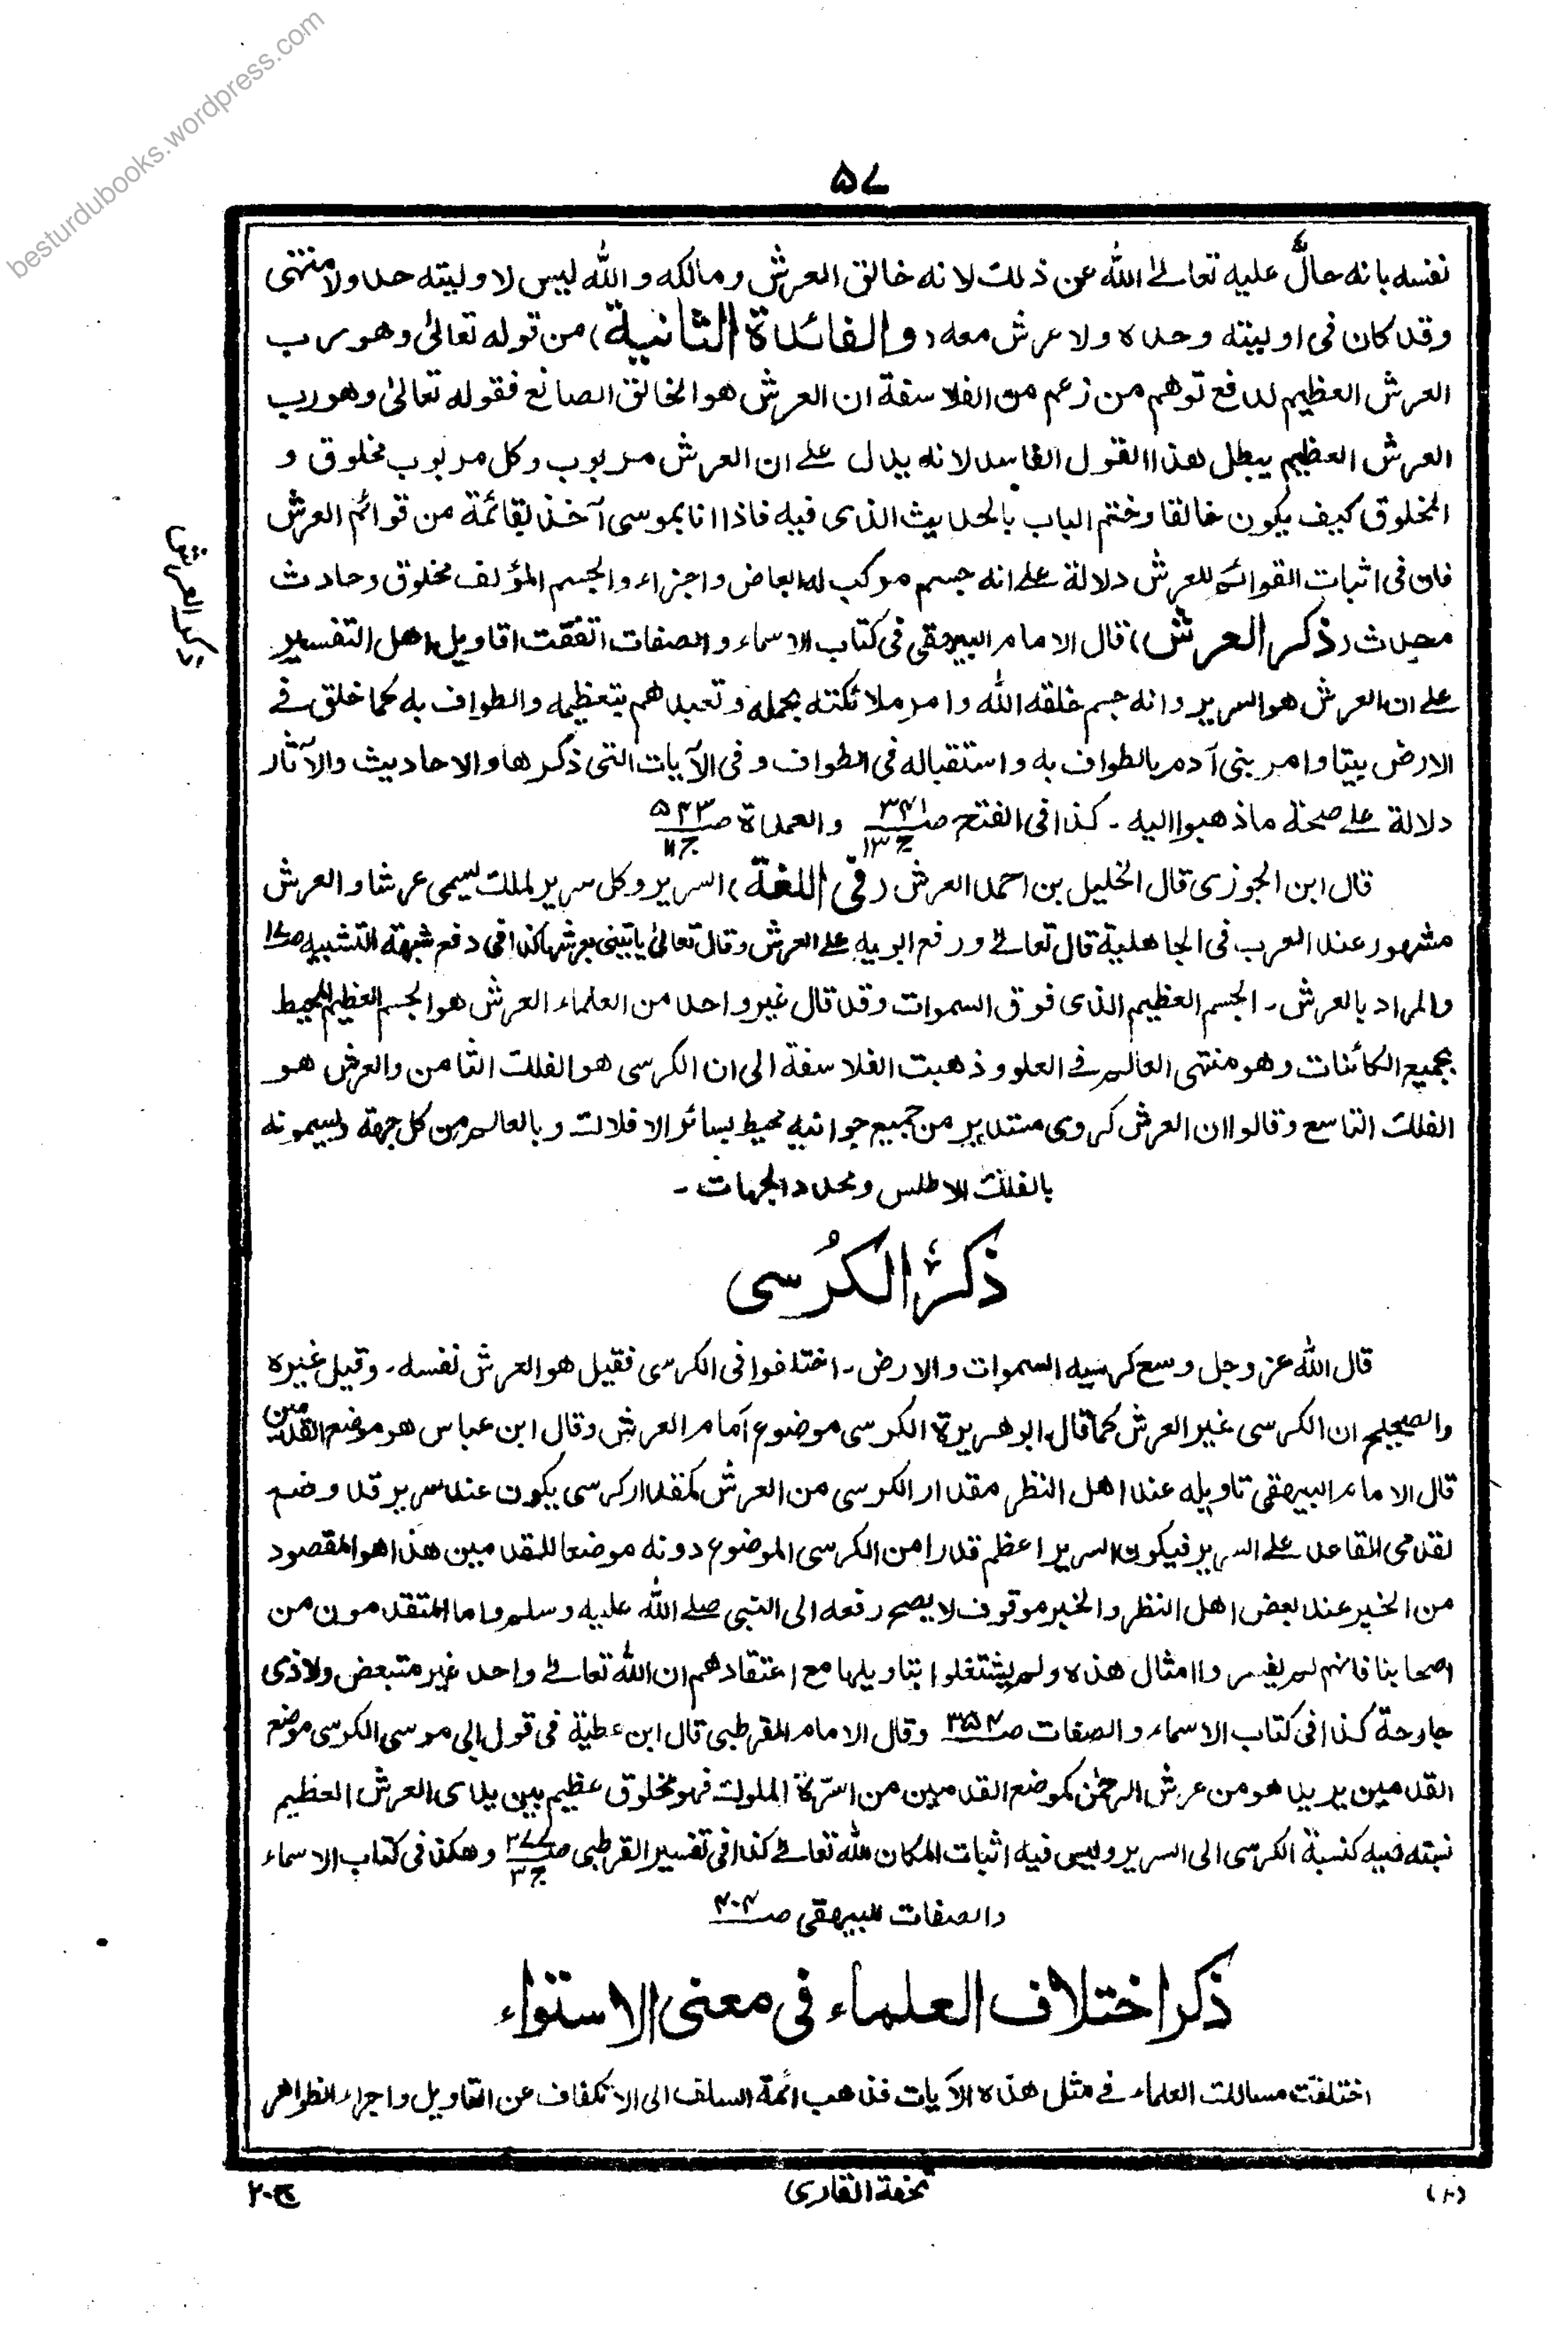 besturdubooks.wordpress.com
۵۷
نفسه بانه حالٌّ عليه تعالىٰ الله عن ذلك لانه خالق العرش ومالكه و الله ليس لاوليته حد ولا منتهى
وقد كان فى اوليته وحده ولا عرش معه (والفائدة الثانية) من قوله تعالىٰ وهو رب
العرش العظيم لدفع توهم من زعم من الفلاسفة ان العرش هو الخالق الصانع فقوله تعالىٰ وهو رب
العرش العظيم يبطل هذا القول الفاسد لانه يدل على ان العرش مربوب وكل مربوب مخلوق و
المخلوق كيف يكون خالقا وختم الباب بالحديث الذى فيه فاذا انا بموسى آخذ بقائمة من قوائم العرش
فان فى اثبات القوائم للعرش دلالة على انه جسم مركب له ابعاض واجزاء والجسم المؤلف مخلوق وحادث
محدث (ذكر العرش) قال الامام البيهقى فى كتاب الاسماء والصفات اتفقت اقاويل اهل التفسير
على ان العرش هو السرير وانه جسم خلقه الله وامر ملائكته بحمله وتعبدهم بتعظيمه والطواف به كما خلق فى
الارض بيتا وامر بنى آدم بالطواف به واستقباله فى الطواف وفى الآيات التى ذكرها والاحاديث والآثار
دلالة على صحة ما ذهبوا اليه - كذا فى الفتح صـ۳۴۱ ج۱۳ والعمدة صـ۵۴۳ ج۱۱
ذكر العرش
قال ابن الجوزى قال الخليل بن احمد العرش (فى اللغة) السرير وكل سرير لملك يسمى عرشا والعرش
مشهور عند العرب فى الجاهلية قال تعالىٰ ورفع ابويه على العرش وقال تعالىٰ ياتينى بعرشها كذا فى دفع شبهة التشبيه صـ
والمراد بالعرش - الجسم العظيم الذى فوق السموات وقد قال غير واحد من العلماء العرش هو الجسم العظيم المحيط
بجميع الكائنات وهو منتهى العالم فى العلو وذهبت الفلاسفة الى ان الكرسى هو الفلك الثامن والعرش هو
الفلك التاسع وقالوا ان العرش كروى مستدير من جميع جوانبه محيط بسائر الافلاك وبالعالم من كل جهة ويسمونه
بالفلك الاطلس ومحدد الجهات -
ذكرُ الكُرسى
قال الله عز وجل وسع كرسيه السموات والارض - اختلفوا فى الكرسى فقيل هو العرش نفسه - وقيل غيره
والصحيح ان الكرسى غير العرش كما قال ابو هريرة الكرسى موضوع أمام العرش وقال ابن عباس هو موضع القدمين
قال الامام البيهقى تاويله عند اهل النظر مقدار الكرسى من العرش كمقدار كرسى يكون عند سرير قد وضع
لقدمى القاعد على السرير فيكون السرير اعظم قدرا من الكرسى الموضوع دونه موضعا للقدمين هذا هو المقصود
من الخبر عند بعض اهل النظر والخبر موقوف لا يصح رفعه الى النبى صلى الله عليه وسلم واما المتقدمون من
اصحابنا فانهم لم يفسروا امثال هذه ولم يشتغلوا بتاويلها مع اعتقادهم ان الله تعالىٰ واحد غير متبعض ولا ذى
جارحة كذا فى كتاب الاسماء والصفات صـ۳۵۴ وقال الامام القرطبى قال ابن عطية فى قول ابى موسى الكرسى موضع
القدمين يريد هو من عرش الرحمٰن كموضع القدمين من اسرّة الملوك فهو مخلوق عظيم بين يدى العرش العظيم
نسبته اليه كنسبة الكرسى الى السرير وليس فيه اثبات المكان لله تعالىٰ كذا فى تفسير القرطبى صـ۲۷۷ ج۳ وهكذا فى كتاب الاسماء
والصفات للبيهقى صـ۴۰۴
ذكر اختلاف العلماء فى معنى الاستواء
اختلفت مسالك العلماء فى مثل هذه الآيات فذهب ائمة السلف الى الانكفاف عن التاويل واجراء الظواهر
(۸) تحفة القارى ج-۲۰